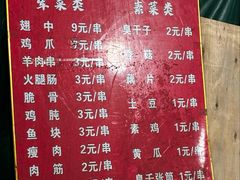 荤菜类 素菜类
翅中 9元/串 臭干子 2元/串
鸡爪 元/串 菇 2元/串
羊肉串 3元/串
火腿肠 3元/串 藕片 2元/串
脆骨 3元/串 土豆 1元/串
鸡肫 3元/串
鱼块 3元/串 素鸡 1元/串
瘦肉 2元/串 黄瓜 1元/串
肉筋 2元/串